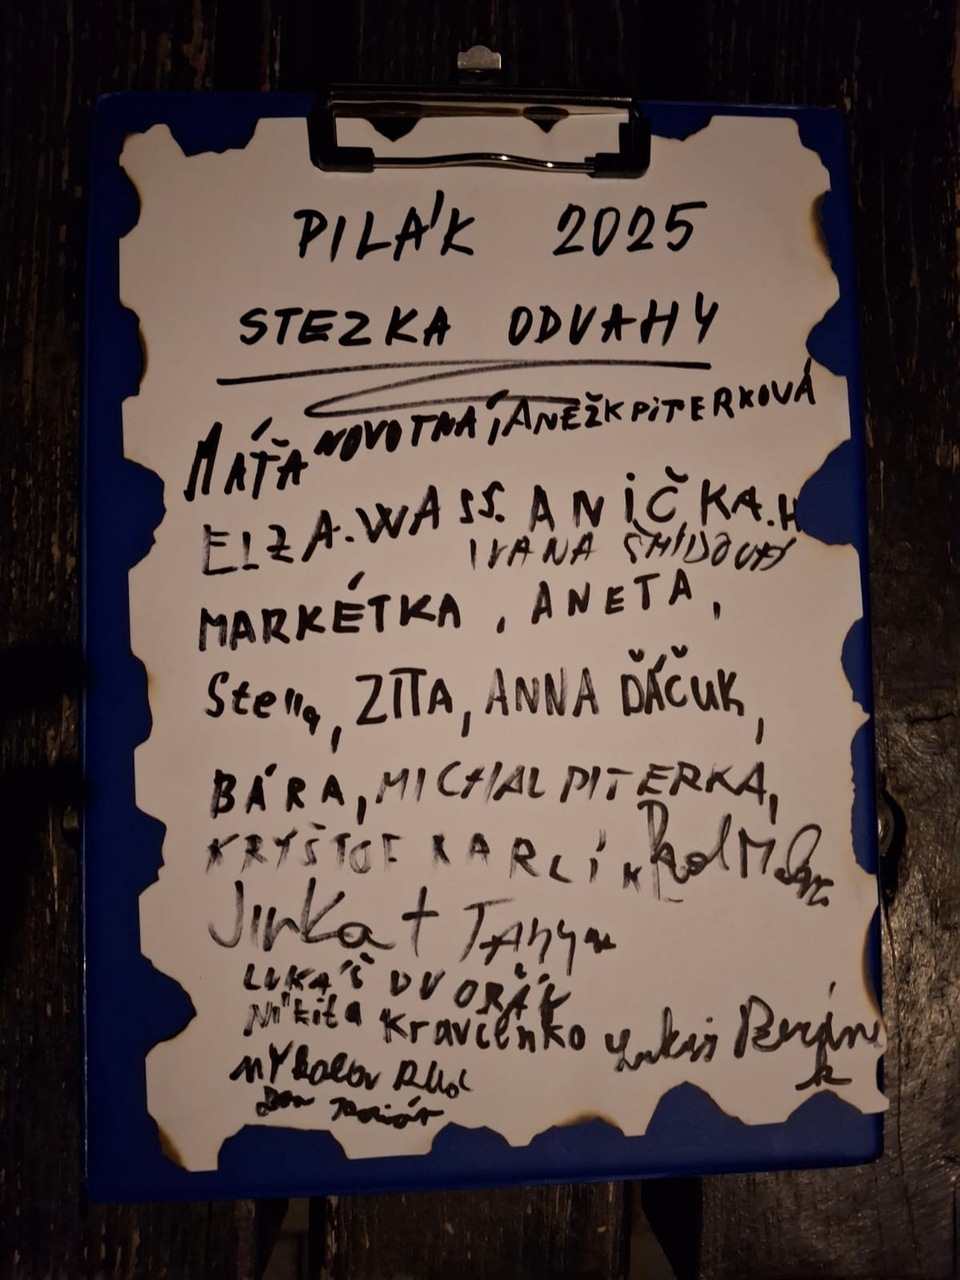 PILÁK 2025
STEZKA ODVAHY
MÁŤA NOVOTNÁ, ANEŽK PITERKOVÁ
ELZA.WASS. ANIČKA.H
IVANA
MARKÉTKA, ANETA,
Stella, ZITA, ANNA ĎÁČUK,
BÁRA, MICHAL PITERKA,
KRYŠTOF KARLÍK
Jirka + TAŇYA
LUKÁŠ DVOŘÁK
Nikita Kravcenko Lukáš